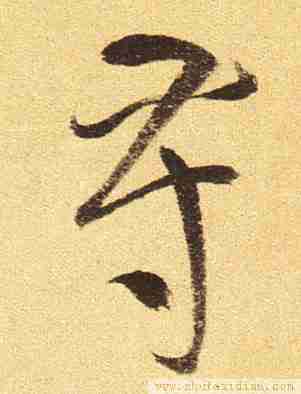 尋
www.shufazidian.com